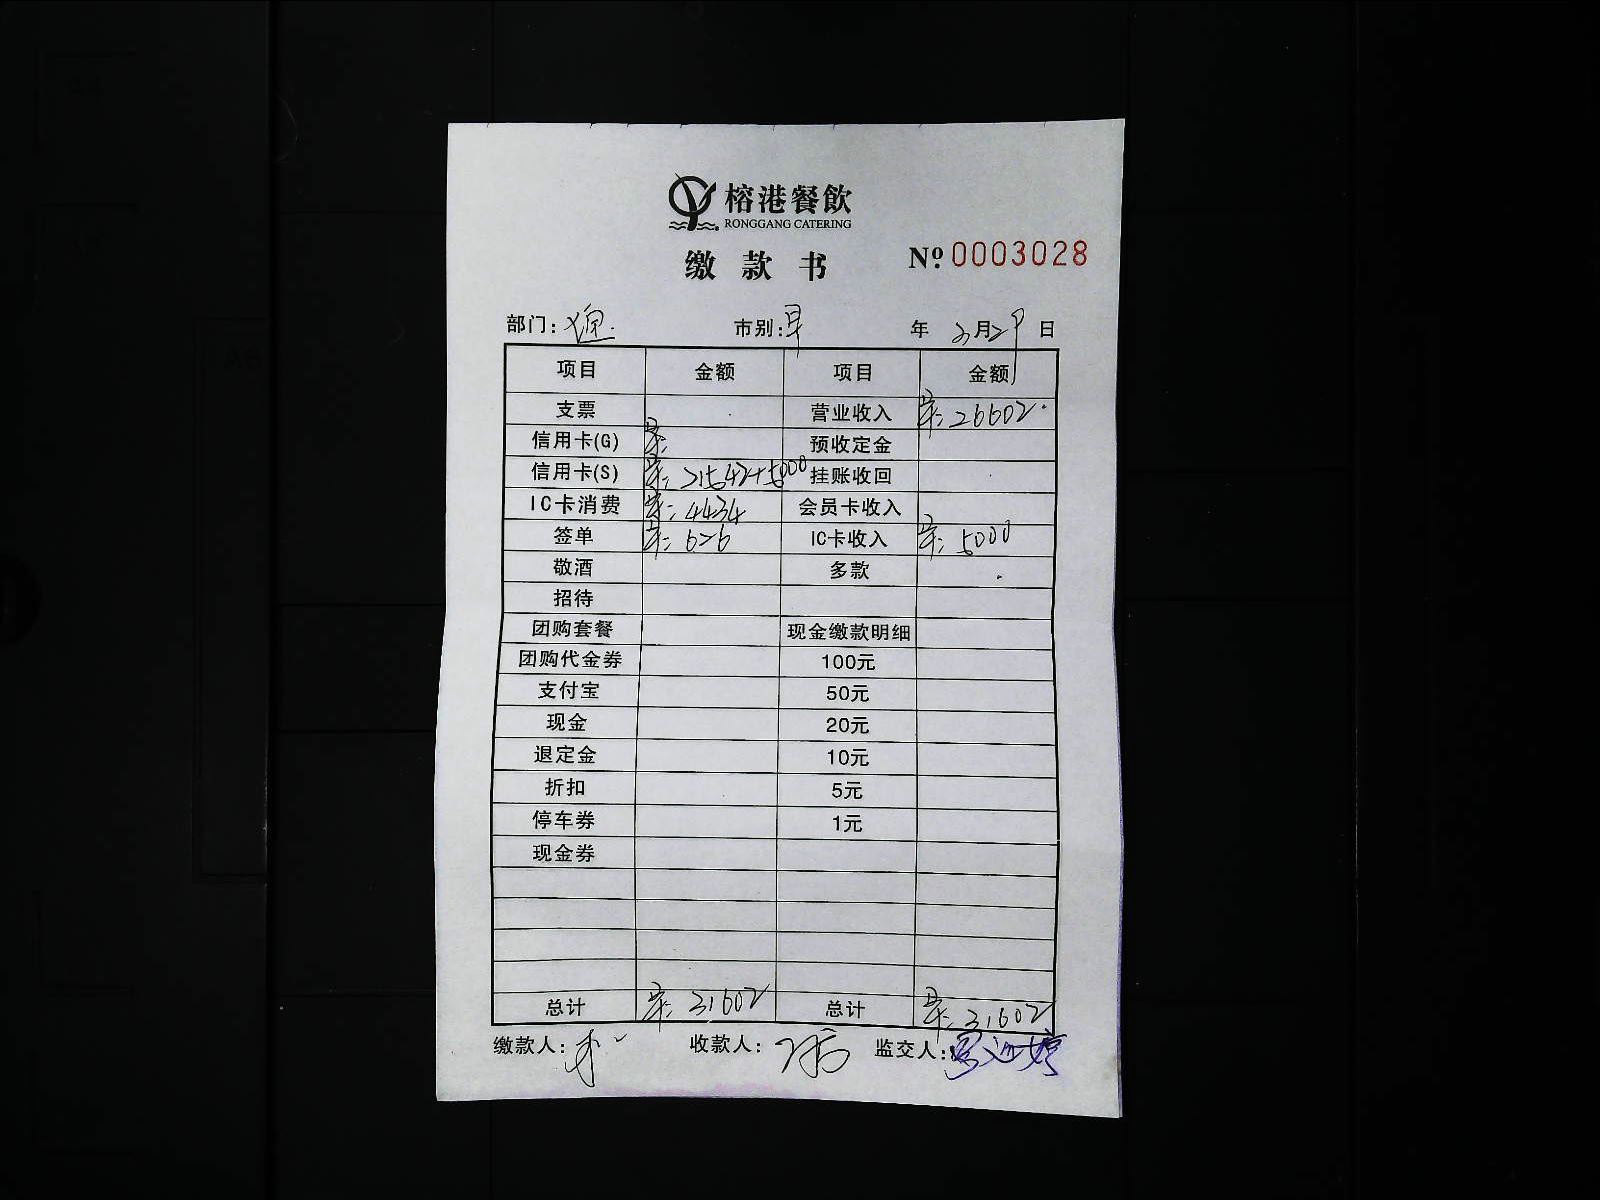 榕港餐飲
RONGGANG CATERING
缴款书 Nº 0003028
部门: 市别:早 年 2月29日
项目 金额 项目 金额
支票 营业收入 早: 26602
信用卡(G) 早: 预收定金
信用卡(S) 早: 21542+5000 挂账收回
IC卡消费 早: 4434 会员卡收入
签单 早: 626 IC卡收入 早: 5000
敬酒 多款
招待
团购套餐 现金缴款明细
团购代金券 100元
支付宝 50元
现金 20元
退定金 10元
折扣 5元
停车券 1元
现金券
总计 早: 31602 总计 早: 31602
缴款人: 收款人: 监交人: